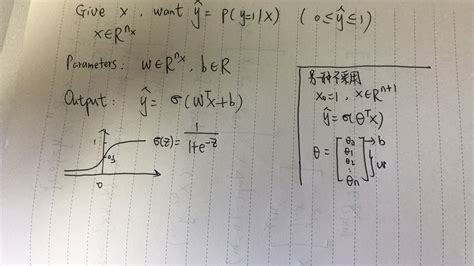 Give x, want ŷ = P(y=1|x) (0≤ŷ≤1)
x∈R^{n_x}
Parameters: w∈R^{n_x}, b∈R
Output: ŷ = σ(W^T x+b)
σ(z) = 1/(1+e^{-z})
1
0.5
0
另一种不采用
x₀=1, x∈R^{n+1}
ŷ=σ(θ^T x)
θ = [θ₀ θ₁ θ₂ ⋮ θₙ] → b
w